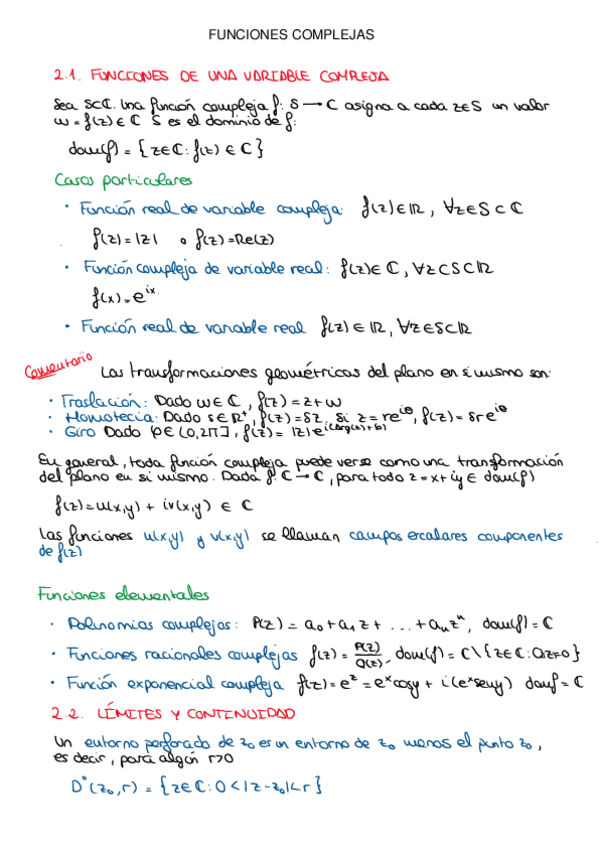 FUNCIONES COMPLEJAS
2.1. FUNCIONES DE UNA VARIABLE COMPLEJA
Sea S⊂ℂ. Una función compleja f: S → ℂ asigna a cada z∈S un valor
w = f(z) ∈ ℂ S es el dominio de f:
dom(f) = {z∈ℂ: f(z) ∈ ℂ}
Casos particulares
· Función real de variable compleja: f(z)∈ℝ, ∀z∈S⊂ℂ
f(z)=|z| o f(z)=Re(z)
· Función compleja de variable real: f(z)∈ ℂ, ∀z⊂S⊂ℝ
f(x)=e^{ix}
· Función real de variable real f(z)∈ℝ, ∀z∈S⊂ℝ
Comentario Las transformaciones geométricas del plano en si mismo son:
· Traslación: Dado w∈ℂ, f(z)=z+w
· Homotecia: Dado s∈ℝ⁺, f(z)=sz, si z=re^{iθ}, f(z)=sre^{iθ}
· Giro Dado φ∈(0,2π], f(z)=|z|e^{i(Arg(z)+φ)}
En general, toda función compleja puede verse como una transformación
del plano en si mismo. Dada f: ℂ → ℂ, para todo z=x+iy ∈ dom(f)
f(z)=u(x,y) + iv(x,y) ∈ ℂ
Las funciones u(x,y) y v(x,y) se llaman campos escalares componentes
de f(z)
Funciones elementales
· Polinomios complejos: P(z) = a₀+a₁z+ ... +aₙzⁿ, dom(f)=ℂ
· Funciones racionales complejas f(z)= P(z)/Q(z), dom(f)=ℂ\{z∈ℂ:Qz=0}
· Función exponencial compleja f(z)=e^z=e^x cosy + i(e^x seny) domf=ℂ
2.2. LÍMITES Y CONTINUIDAD
Un entorno perforado de z₀ es un entorno de z₀ menos el punto z₀,
es decir, para algún r>0
D*(z₀,r) = {z∈ℂ:0<|z-z₀|<r}